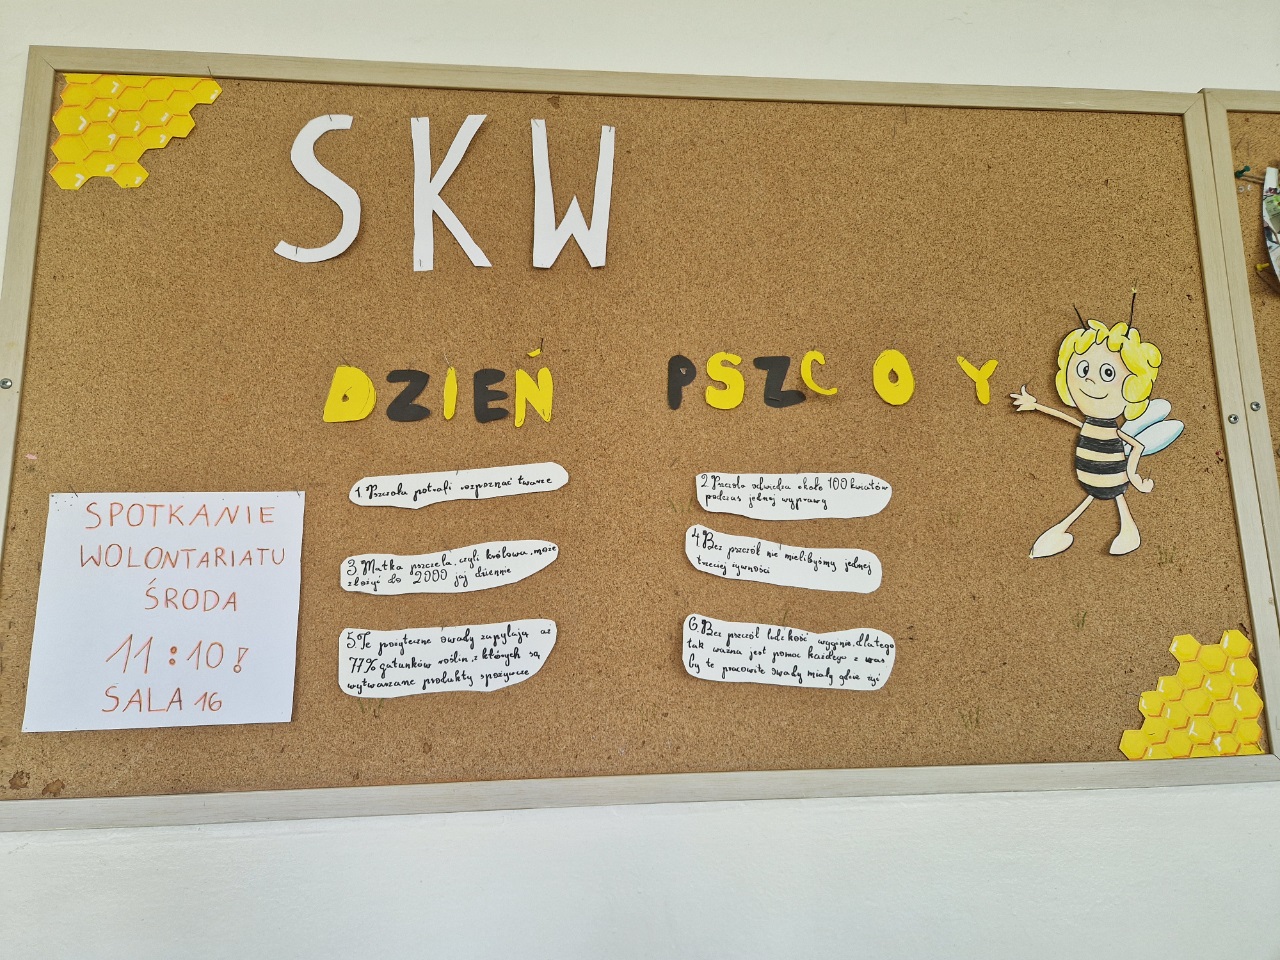 SKW
DZIEŃ PSZCOY
1. Pszczoła potrafi rozpoznać twarze
2. Pszczoła odwiedza około 100 kwiatów
podczas jednej wyprawy
3. Matka pszczela, czyli królowa, może
złożyć do 2000 jaj dziennie
4. Bez pszczół nie mielibyśmy jednej
trzeciej żywności
5. Te pożyteczne owady zapylają aż
77% gatunków roślin, z których są
wytwarzane produkty spożywcze
6. Bez pszczół ludzkość wyginie, dlatego
tak ważna jest pomoc każdego z was
by te pracowite owady miały gdzie żyć
SPOTKANIE
WOLONTARIATU
ŚRODA
11:10!
SALA 16